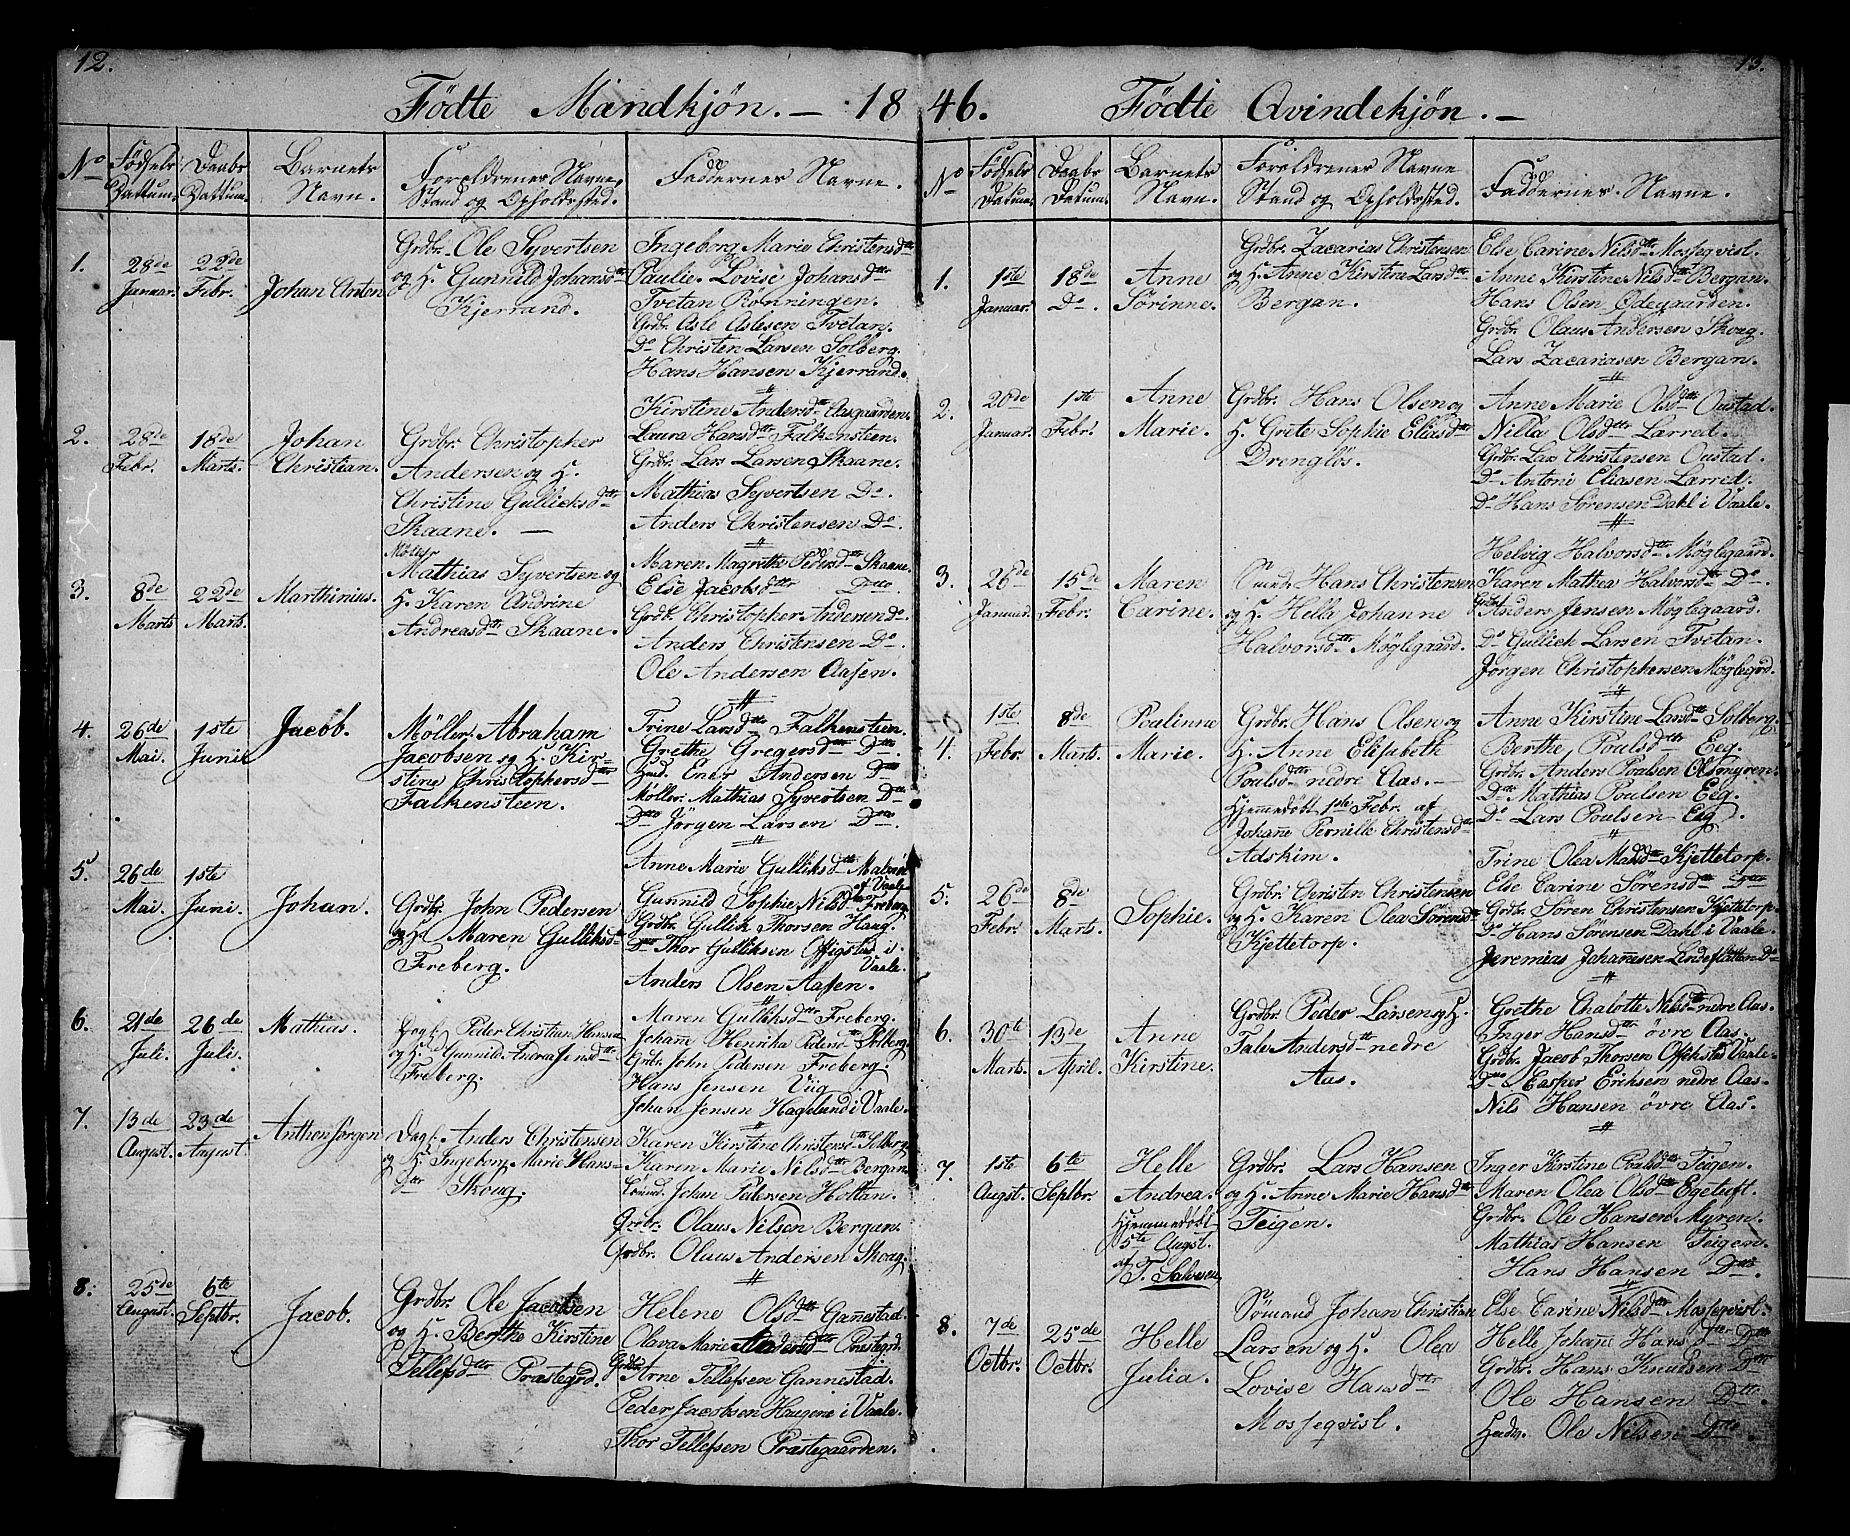 12.
Födte Mandkjön. — 18
No
Födsels Dattum.
Daabs Dattum.
Barnets Navn.
Foreldrenes Navne, Stand og Opholdssted.
Faddernes Navne.
1.
28de Januar.
22de Febr.
Johan Anton
Grdbr. Ole Syvertsen
og H. Gunnild Johansdtr
Kjerrand.
Ingeborg Marie Christensdtr
Paulie Lovise Johansdtr
Tvetan Rönningen.
Grdbr. Asle Aslesen Tvetan.
Do Christen Larsen Solberg.
Hans Hansen Kjerrand.
2.
28de Febr.
18de Marts.
Johan Christian.
Grdbr. Christopher
Andersen og H.
Christine Gullicksdtr
Skaane. —
Kirstine Andersdtr Aasgaarden.
Laura Hansdtr Falkensteen.
Grdbr. Lars Larsen Skaane.
Mathias Syvertsen Do.
Anders Christensen Do.
3.
8de Marts
22de Marts.
Marthinius.
Möller
Mathias Syvertsen og
H. Karen Andrine
Andreasdtr Skaane.
Maren Magrethe Pedersdtr Skaane.
Else Jacobsdtr Ditto
Grdbr. Christopher Andersen do.
Anders Christensen Do.
Ole Andersen Aasen.
4.
26de Mai.
1ste Junii
Jacob.
Möller. Abraham
Jacobsen og H. Kir-
stine Christophersdtr
Falkensteen.
Trine Larsdtr Falkensteen.
Grethe Gregersdtr Dtto.
Huusd. Ener Andersen Dtto
Möller. Mathias Syvertsen Dtto
Ditto Jörgen Larsen Dtto.
5.
26de Mai.
1ste Juni.
Johan.
Grdbr. John Pedersen
og H. Maren Gulliksdtr
Freberg.
Anne Marie Gulliksdtr
af Vaale
Gunnild Sophie Nilsdtr Freberg
Grdbr. Gullik Thorsen Haug.
Dtto Thor Gulliksen i
Vaale.
Anders Olsen Aasen.
6.
21de Juli.
26de Juli.
Mathias.
Dagl. Peder Christian Hansen
og H. Gunnild Andrea Jensdtr
Freberg.
Maren Gulliksdtr Freberg.
Johanne Henrika Pedersdtr Solberg.
Grdbr. John Pedersen Freberg.
Hans Jensen Viig.
Johan Jensen Hagelund i Vaale.
7.
13de August.
23de August.
Anthon Jörgen
Dagl. Anders Christensen
og H. Ingeborg Marie Hans-
dtr Skoug.
Karen Kirstine Christensdtr Solberg
Karen Marie Nilsdtr Bergan
Johan Pedersen Holtan.
Grdbr. Olaus Nilsen Bergan.
Grdbr. Olaus Andersen Skoug.
8.
25de August.
6te Septbr.
Jacob.
Grdbr. Ole Jacobsen
og H. Berthe Kirstine
Tellefsdtr Præstegrd.
Helene Olsdtr Gannestad.
Olava Marie Andersdtr Præstegrd.
Grdbr. Arne Tellefsen Gannestad.
Peder Jacobsen Haugene i Vaale.
Thor Tellefsen Præstegaarden.
13.
46. Födte Qvindekjön. —
No
Födsels Datum.
Daabs Datum.
Barnets Navn.
Foreldrenes Navne Stand og Opholdssted.
Faddernes Navne.
1.
1ste Januar.
18de Do.
Anne Sörinne.
Grdbr. Zacarias Christensen
og H. Anne Kirstine Larsdtr
Bergan.
Else Carine Nilsdtr Mosseqvisl.
Anne Kirstine Nilsdtr Bergan.
Hans Olsen Ödegaarden.
Grdbr. Olaus Andersen Skoug.
Lars Zacariasen Bergan.
2.
20de Januar.
1ste Febr.
Anne Marie.
Grdbr. Hans Olsen og
H. Grete Sophie Eliasdtr
Drenglös.
Anne Marie Olsdtr Oustad.
Nilla Olsdtr Larred.
Grdbr. Lars Christensen Oustad.
Do Antoni Eliasen Larred.
Do Hans Sörensen Dahl i Vaale.
3.
26de Januar.
15de Febr.
Maren Carine.
Hans Christensen
og H. Hella Johanne
Halvorsdtr Möglegaard.
Helvig Halvorsdtr Möglegaard.
Karen Mathea Halvorsdtr Do.
Grdbr. Anders Jensen Möglegaard.
Do Gullich Larsen Tvetan.
Jörgen Christophersen Möglegrd.
4.
1ste Febr.
8de Marts.
Paulinne Marie.
Grdbr. Hans Olsen og
H. Anne Elisabeth
Poulsdtr nedre Aas. —
Hjemmedöbt 1ste Febr. af
Johane Pernille Christensdtr
Adskim.
Anne Kirstine Larsdtr Solberg.
Berthe Poulsdtr Eeg.
Grdbr. Anders Poulsen Olsmyren.
Do Mathias Poulsen Eeg.
Do Lars Poulsen Eeg.
5.
26de Febr.
8de Marts.
Sophie.
Grdbr. Christen Christensen
og H. Karen Olea Sörensdtr
Kjettetorp.
Trine Olea Madsdtr Kjettetorp.
Else Carine Sörensdtr Dtto
Grdbr. Sören Christensen Kjettetorp.
Do Hans Sörensen Dahl i Vaale.
Jeremias Johannesen Do
6.
30te Marts.
13de April.
Anne Kirstine.
Grdbr. Peder Larsen og H.
Tale Andersdtr nedre
Aas.
Grethe Chalotte Nilsdtr nedre Aas.
Inger Hansdtr övre Aas.
Grdbr. Jacob Thorsen Vaale.
Dtto Casper Eriksen nedre Aas.
Nils Hansen övre Aas.
7.
1ste Augst.
6te Septbr.
Helle Andrea.
Hjemmedöbt
5te Augst.
af T. Salvesen
Grdbr. Lars Hansen
og H. Anne Marie Hansdtr
Teigen.
Inger Kirstine Poulsdtr Teigen.
Maren Olea Olsdtr Egetuft.
Grdbr. Ole Hansen Myren.
Mathias Hansen Teigen.
Hans Hansen Dtto.
8.
7de Octbr.
25de Octbr.
Helle Julia.
Sömand Johan Christian
Larsen og H. Olea
Lovise Hansdtr
Mosseqvisl.
Else Carine Nilsdtr Mosseqvisl.
Helle Johanne Hansdtr Dtto
Grdbr. Hans Knudsen Dtto
Ole Hansen Dtto.
Ole Nilsen Dtto.